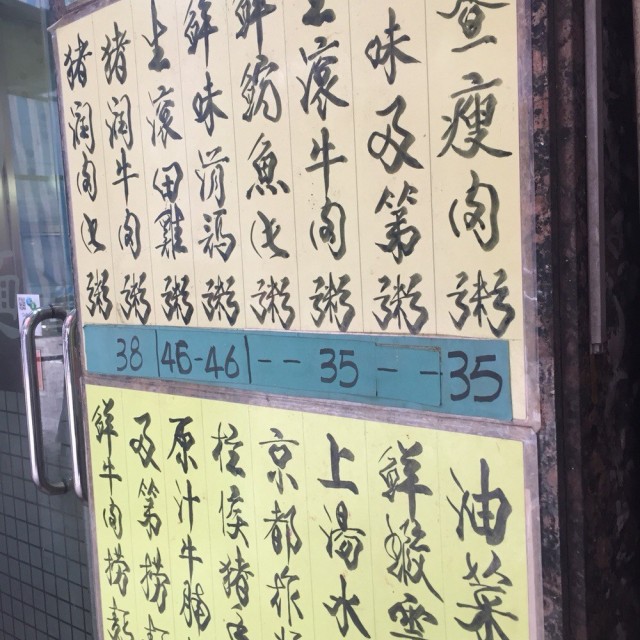 瘦肉粥
味及第粥
生滾牛肉粥
鮮魚粥
鮮味粥
生滾田雞粥
猪潤牛肉粥
猪潤肉粥
38 46-46 -- 35 -- 35
油菜
鮮蝦雲
上湯水
京都炸
柱侯猪
原汁牛腩
及第撈
鮮牛肉撈